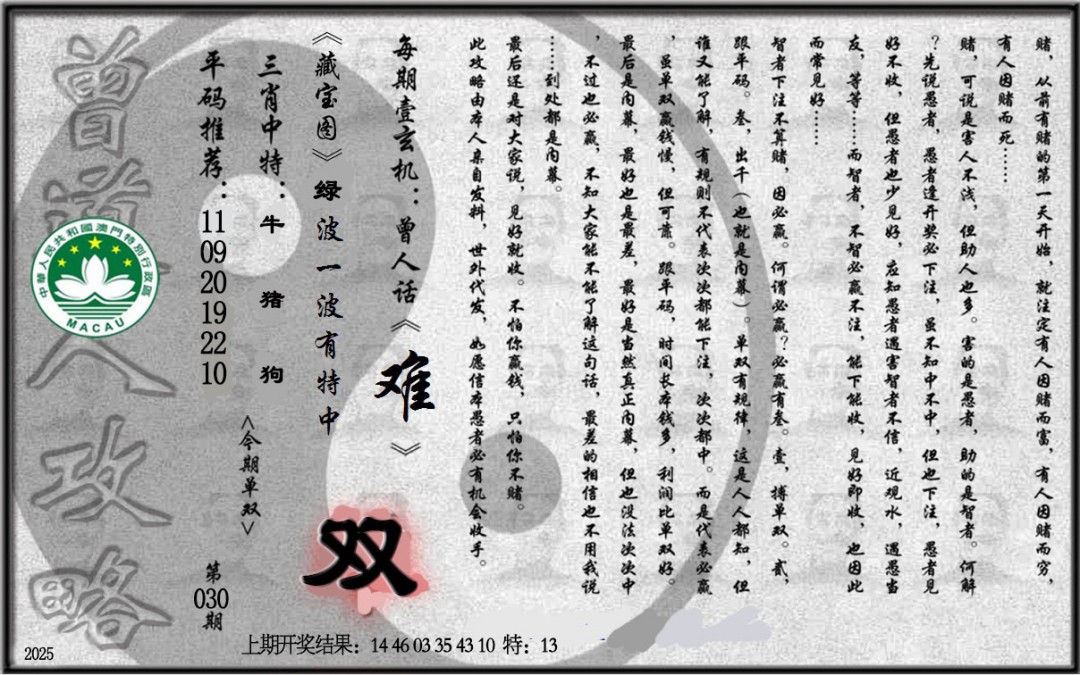 赌，从前有赌的第一天开始，就注定有人因赌而富，有人因赌而穷，
有人因赌而死……
赌，可说是害人不浅，但助人也多。害的是愚者，助的是智者。何解
？先说愚者，愚者逢开奖必下注，虽不知中不中，但也下注，愚者见
好不收，但愚者也少见好，应知愚者遇害智者不信，近观水，遇愚当
友，等等……而智者，不智必赢不注，能下能收，见好即收，也因此
而常见好……
智者下注不算赌，因必赢。何谓必赢？必赢有叁。壹，搏单双。贰，
跟平码。叁，出千（也就是内幕）。单双有规律，这是人人都知，但
谁又能了解，有规则不代表次次都能下注，次次都中。而是代表必赢
，虽单双赢钱慢，但可靠。跟平码，时间长本钱多，利润比单双好。
最后是内幕，最好也是最差，最好是当然真正内幕，但也没法次次中
，不过也必赢，不知大家能不能了解这句话，最差的相信也不用我说
……到处都是内幕。
最后还是对大家说，见好就收。不怕你赢钱，只怕你不赌。
此攻略由本人亲自发料，世外代发，如愿信本愚者必有机会收手。
每期壹玄机：曾人话《难》
《藏宝图》绿波一波有特中
双
三肖中特：牛 猪 狗
<今期单双>
平码推荐：11 09 20 19 22 10
第030期
曾道人攻略
中華人民共和國澳門特別行政區
MACAU
上期开奖结果：14 46 03 35 43 10 特：13
2025